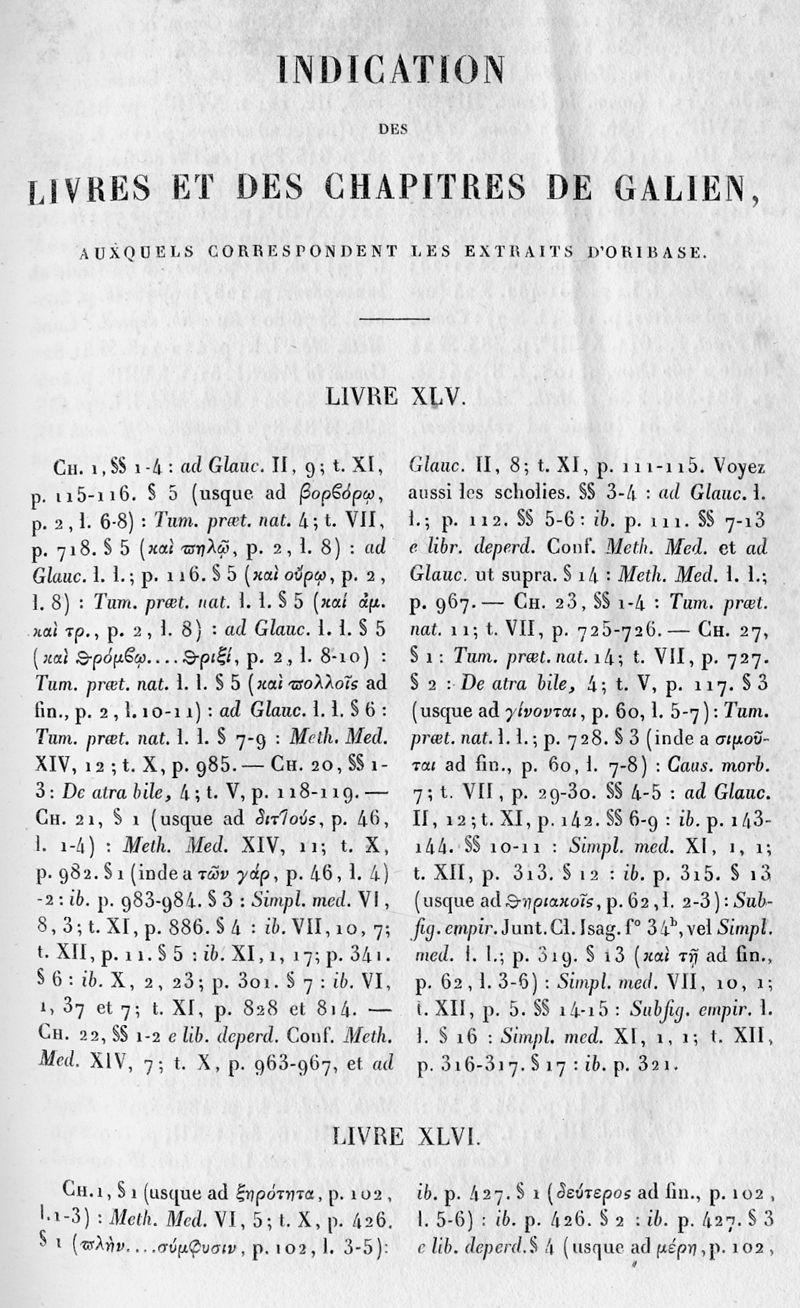 INDICATION
DES
LIVRES ET DES CHAPITRES DE GALIEN,
AUXQUELS CORRESPONDENT LES EXTRAITS D'ORIBASE.
LIVRE XLV.
CH. 1, §§ 1-4 : ad Glauc. II, 9; t. XI,
p. 115-116. § 5 (usque ad βορβόρῳ,
p. 2, l. 6-8) : Tum. præt. nat. 4; t. VII,
p. 718. § 5 (καὶ πηλῷ, p. 2, l. 8) : ad
Glauc. l. l.; p. 116. § 5 (καὶ οὔρῳ, p. 2,
l. 8) : Tum. præt. nat. l. l. § 5 (καί ἀμ.
καὶ τρ., p. 2, l. 8) : ad Glauc. l. l. § 5
(καὶ ϑρόμβῳ....ϑριξί, p. 2, l. 8-10) :
Tum. præt. nat. l. l. § 5 (καὶ πολλοῖς ad
fin., p. 2, l. 10-11) : ad Glauc. l. l. § 6 :
Tum. præt. nat. l. l. § 7-9 : Meth. Med.
XIV, 12; t. X, p. 985. — CH. 20, §§ 1-
3 : De atra bile, 4; t. V, p. 118-119. —
CH. 21, § 1 (usque ad διτ7ούς, p. 46,
l. 1-4) : Meth. Med. XIV, 11; t. X,
p. 982. § 1 (inde a τῶν γάρ, p. 46, l. 4)
-2 : ib. p. 983-984. § 3 : Simpl. med. VI,
8, 3; t. XI, p. 886. § 4 : ib. VII, 10, 7;
t. XII, p. 11. § 5 : ib. XI, 1, 17; p. 341.
§ 6 : ib. X, 2, 23; p. 301. § 7 : ib. VI,
1, 37 et 7; t. XI, p. 828 et 814. —
CH. 22, §§ 1-2 e lib. deperd. Conf. Meth.
Med. XIV, 7; t. X, p. 963-967, et ad
Glauc. II, 8; t. XI, p. 111-115. Voyez
aussi les scholies. §§ 3-4 : ad Glauc. l.
l.; p. 112. §§ 5-6 : ib. p. 111. §§ 7-13
e libr. deperd. Conf. Meth. Med. et ad
Glauc. ut supra. § 14 : Meth. Med. l. l.;
p. 967. — CH. 23, §§ 1-4 : Tum. præt.
nat. 11; t. VII, p. 725-726. — CH. 27,
§ 1 : Tum. præt. nat. 14; t. VII, p. 727.
§ 2 : De atra bile, 4; t. V, p. 117. § 3
(usque ad γίνονται, p. 60, l. 5-7) : Tum.
præt. nat. l. l.; p. 728. § 3 (inde a σιμοῦν-
ται ad fin., p. 60, l. 7-8) : Caus. morb.
7; t. VII, p. 29-30. §§ 4-5 : ad Glauc.
II, 12; t. XI, p. 142. §§ 6-9 : ib. p. 143-
144. §§ 10-11 : Simpl. med. XI, 1, 1;
t. XII, p. 313. § 12 : ib. p. 315. § 13
(usque ad ϑηριακοῖς, p. 62, l. 2-3) : Sub-
fig. empir. Junt. Cl. Isag. f° 34ᵇ, vel Simpl.
med. l. l.; p. 319. § 13 (καὶ τῇ ad fin.,
p. 62, l. 3-6) : Simpl. med. VII, 10, 1;
t. XII, p. 5. §§ 14-15 : Subfig. empir. l.
l. § 16 : Simpl. med. XI, 1, 1; t. XII,
p. 316-317. § 17 : ib. p. 321.
LIVRE XLVI.
CH. 1, § 1 (usque ad ξηρότητα, p. 102,
l. 1-3) : Meth. Med. VI, 5; t. X, p. 426.
§ 1 (πλὴν....σύμφυσιν, p. 102, l. 3-5) :
ib. p. 427. § 1 (δεύτερος ad fin., p. 102,
l. 5-6) : ib. p. 426. § 2 : ib. p. 427. § 3
e lib. deperd. § 4 (usque ad μέρη, p. 102,